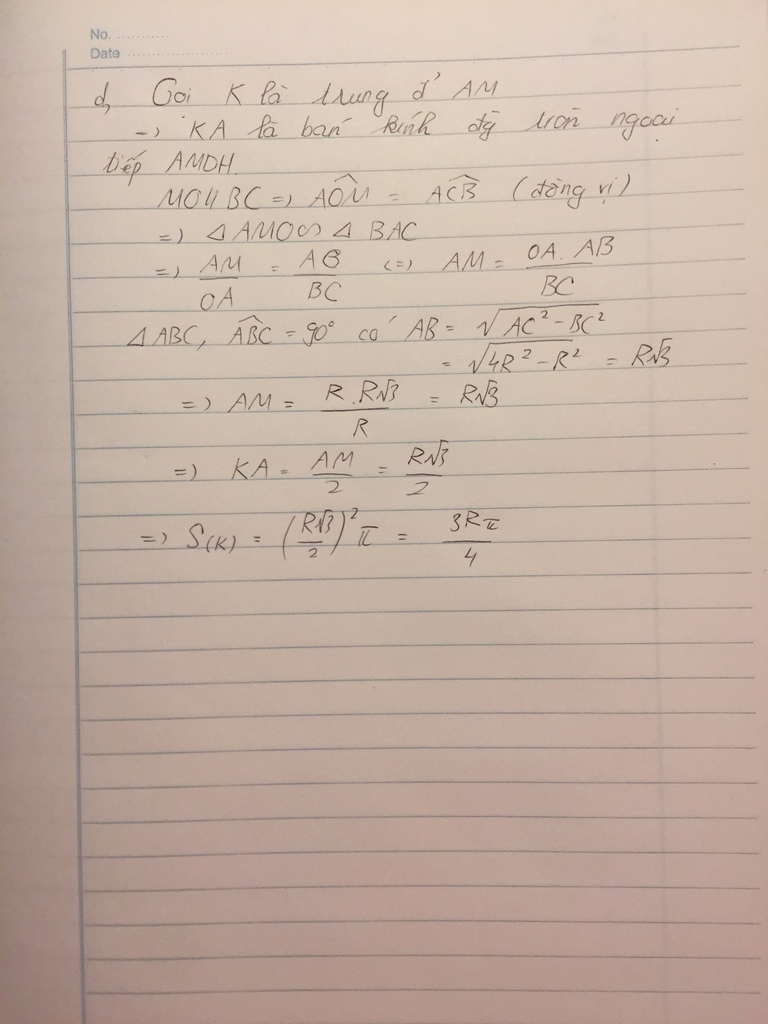 No. ...........
Date ......................
d, Goi K là trung đ' AM
=> KA là bań kính đg tròn ngoại
tiếp AMDH.
MO // BC => \widehat{AOM} = \widehat{ACB} (đồng vị)
=> △ AMO ∽ △ BAC
=> \frac{AM}{OA} = \frac{AB}{BC} <=> AM = \frac{OA. AB}{BC}
△ ABC, \widehat{ABC} = 90° có AB = \sqrt{AC^2 - BC^2}
= \sqrt{4R^2 - R^2} = R\sqrt{3}
=> AM = \frac{R . R\sqrt{3}}{R} = R\sqrt{3}
=> KA = \frac{AM}{2} = \frac{R\sqrt{3}}{2}
=> S(K) = (\frac{R\sqrt{3}}{2})^2 π = \frac{3Rπ}{4}